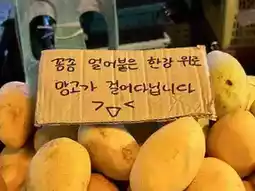 꽁꽁 얼어붙은 한강 위로
망고가 걸어다닙니다
>ㅁ<